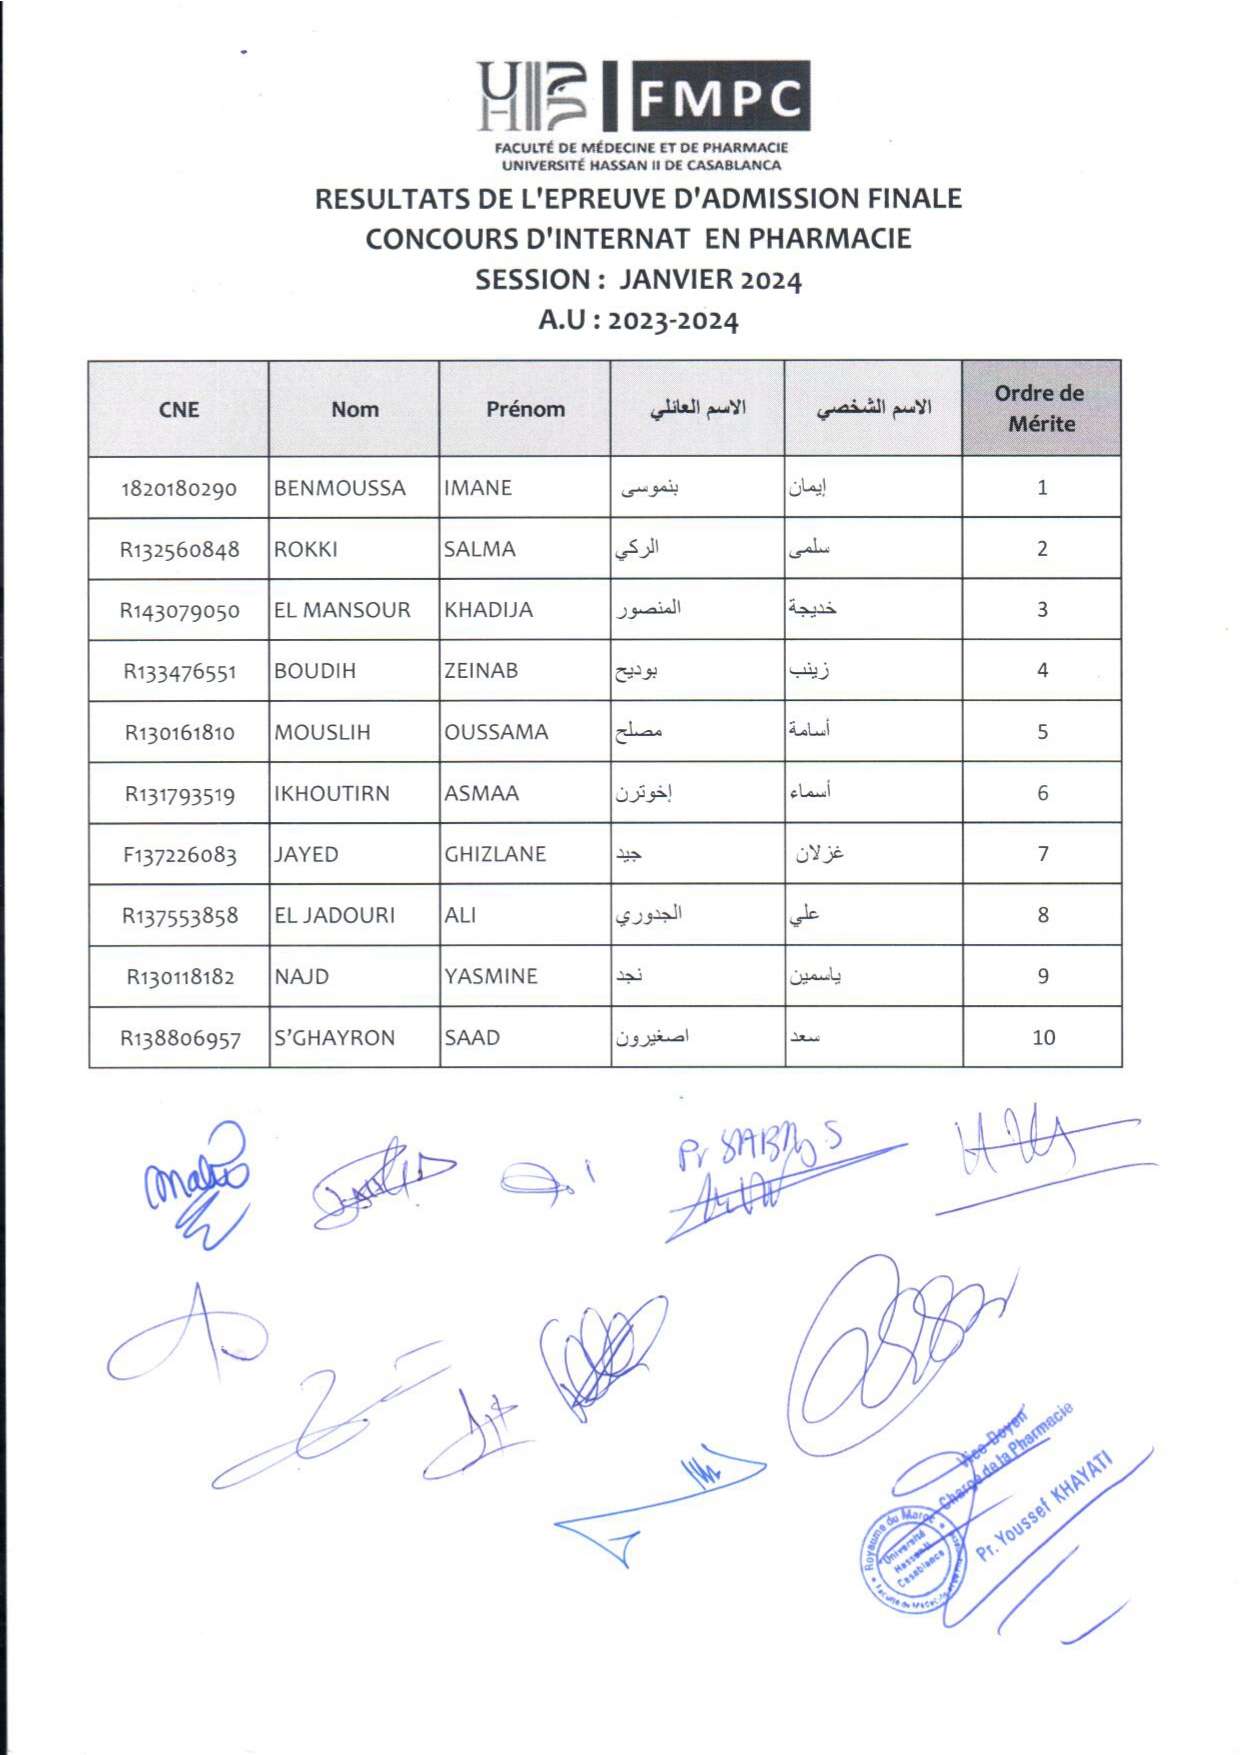 UH2C FMPC
FACULTÉ DE MÉDECINE ET DE PHARMACIE
UNIVERSITÉ HASSAN II DE CASABLANCA
RESULTATS DE L'EPREUVE D'ADMISSION FINALE
CONCOURS D'INTERNAT EN PHARMACIE
SESSION : JANVIER 2024
A.U : 2023-2024
CNE Nom Prénom الاسم العائلي الاسم الشخصي Ordre de Mérite
1820180290 BENMOUSSA IMANE بنموسى إيمان 1
R132560848 ROKKI SALMA الركي سلمى 2
R143079050 EL MANSOUR KHADIJA المنصور خديجة 3
R133476551 BOUDIH ZEINAB بوديح زينب 4
R130161810 MOUSLIH OUSSAMA مصلح أسامة 5
R131793519 IKHOUTIRN ASMAA إخوترن أسماء 6
F137226083 JAYED GHIZLANE جيد غزلان 7
R137553858 EL JADOURI ALI الجدوري علي 8
R130118182 NAJD YASMINE نجد ياسمين 9
R138806957 S'GHAYRON SAAD اصغيرون سعد 10
Pr SABRY S
Vice Doyen
Chargé de la Pharmacie
Pr. Youssef KHAYATI
Royaume du Maroc
Université
Hassan II
Casablanca